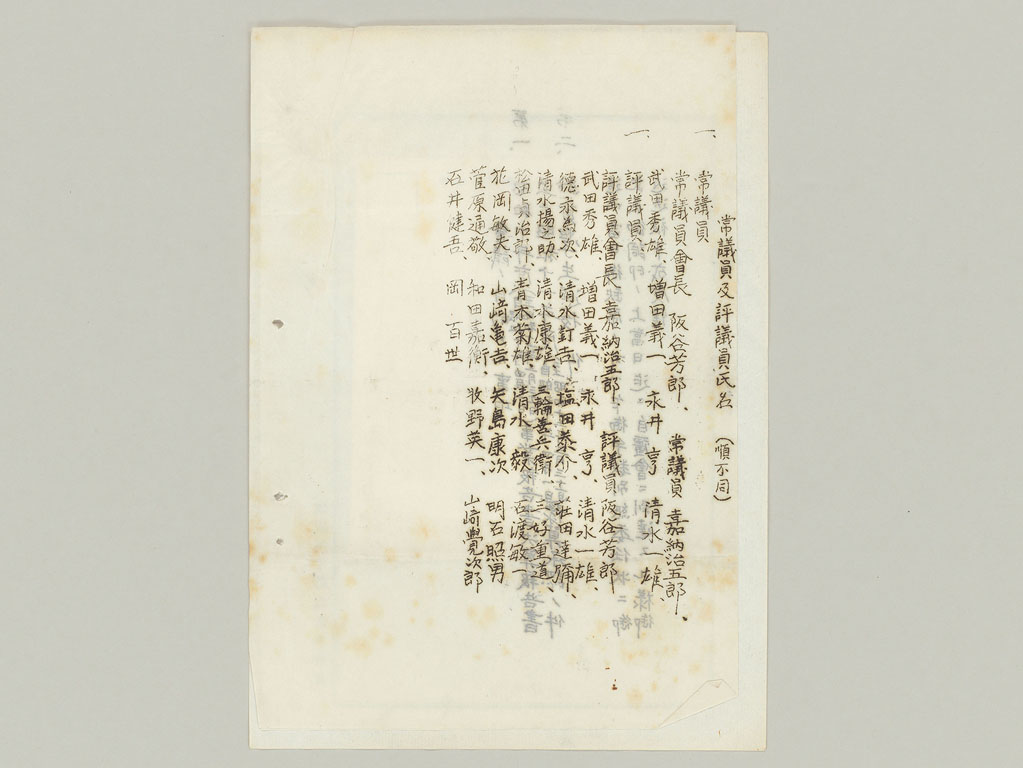 常議員及評議員氏名 (順不同)
一、常議員
常議員會長 阪谷芳郎、常議員 嘉納治五郎、
武田秀雄、増田義一 永井 亨 清水一雄、
一、評議員
評議員會長 嘉納治五郎、評議員 阪谷芳郎
武田秀雄、増田義一、永井 亨、清水一雄、
德永為次、清水釘吉、塩田泰介、荘田達彌、
清水揚之助 清水康雄 三輪善兵衛 三好重道、
貞治郎、青木菊雄、清水 毅 石渡敏一
花岡敏夫、山﨑亀吉、矢島康次 明石照男
菅原通敬、和田嘉衡、牧野英一、山﨑覺次郎
石井健吾、岡 百世